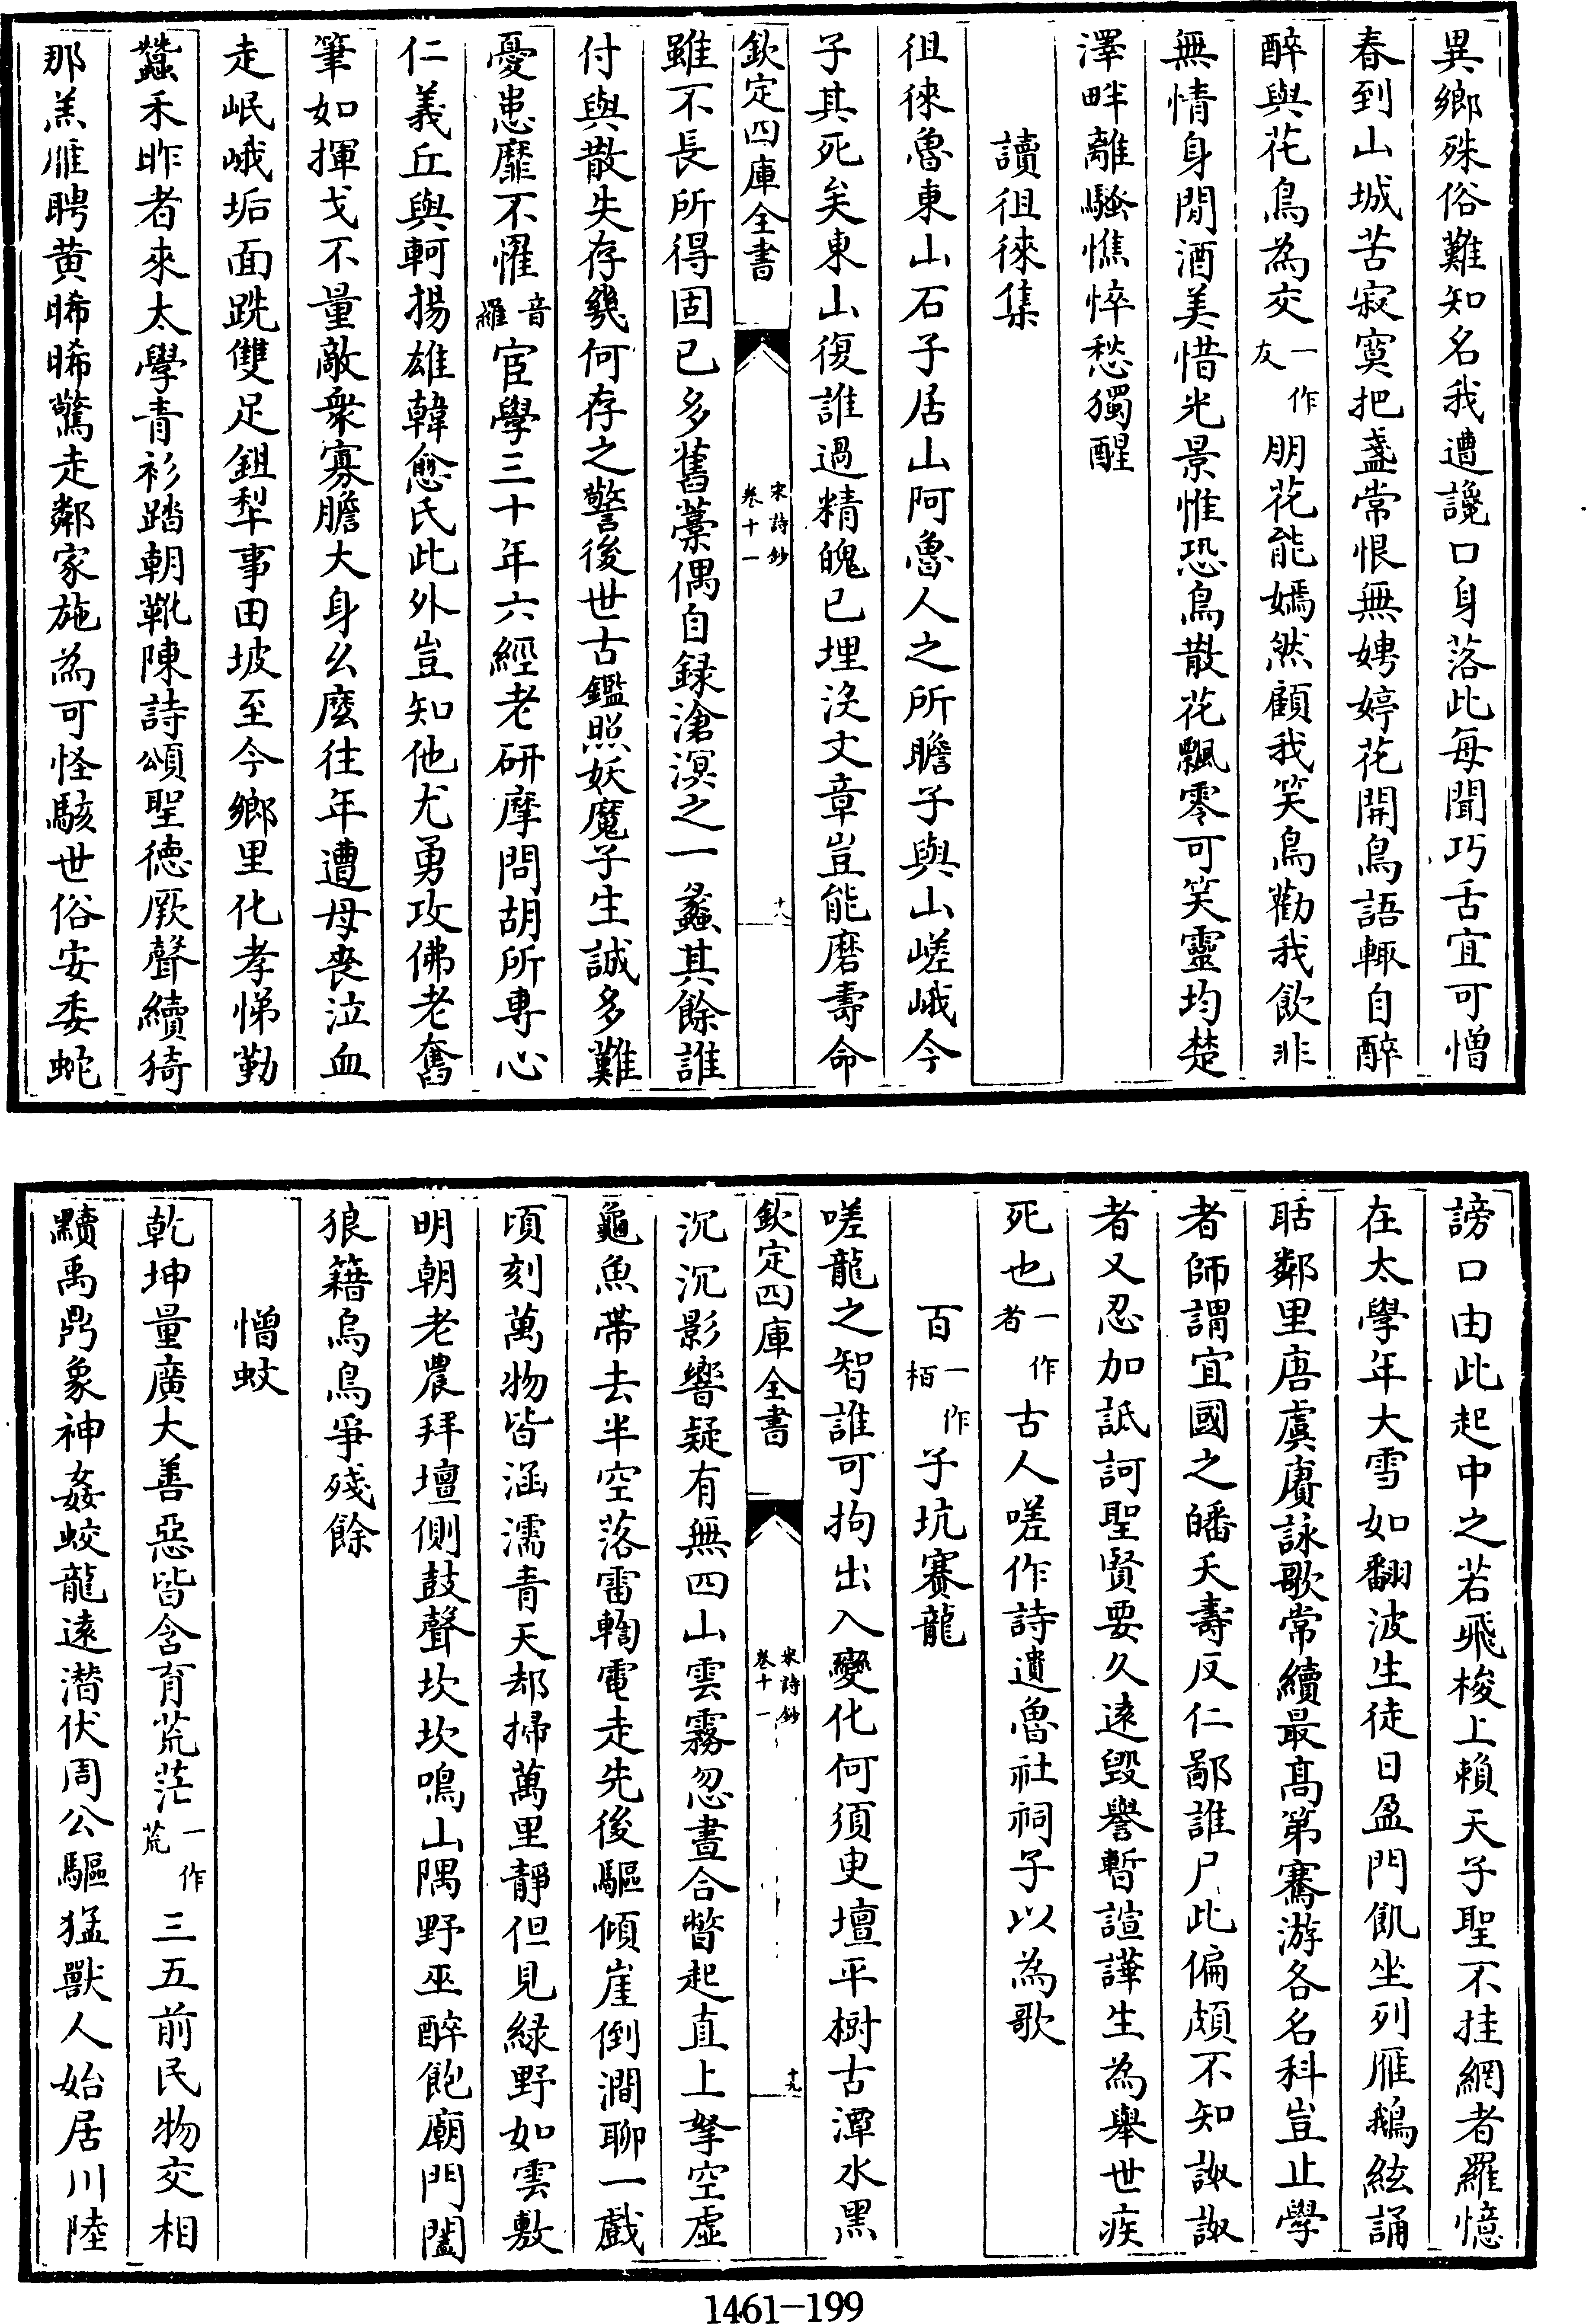 異鄉殊俗難知名我遭讒口身落此每聞巧舌宜可憎
春到山城苦寂寞把盞常恨無娉婷花開鳥語輒自醉
醉與花鳥為交一作友朋花能嫣然顧我笑鳥勸我飲非
無情身閒酒美惜光景惟恐鳥散花飄零可笑靈均楚
澤畔離騷憔悴愁獨醒
讀徂徠集
徂徠魯東山石子居山阿魯人之所瞻子與山嵯峨今
子其死矣東山復誰過精魄已埋沒文章豈能磨壽命
欽定四庫全書
宋詩鈔
卷十一
十八
雖不長所得固已多舊藁偶自録滄溟之一蠡其餘誰
付與散失存幾何存之警後世古鑑照妖魔子生誠多難
憂患靡不罹音羅宦學三十年六經老研摩問胡所專心
仁義丘與軻揚雄韓愈氏此外豈知他尤勇攻佛老奮
筆如揮戈不量敵衆寡膽大身幺麽往年遭母喪泣血
走岷峨垢面跣雙足鉏犂事田坡至今鄉里化孝悌勤
蠶禾昨者來太學青衫踏朝靴陳詩頌聖德厥聲續猗
那羔雁聘黃晞晞驚走鄰家施為可怪駭世俗安委蛇
謗口由此起中之若飛梭上賴天子聖不挂網者羅憶
在太學年大雪如翻波生徒日盈門飢坐列雁鵝絃誦
聒鄰里唐虞賡詠歌常續最高第騫游各名科豈止學
者師謂宜國之皤夭壽反仁鄙誰尸此偏頗不知詖詖
者又忍加詆訶聖賢要久遠毀譽暫諠譁生為舉世疾
死也一作者古人嗟作詩遺魯社祠子以為歌
百一作栢子坑賽龍
嗟龍之智誰可拘出入變化何須臾壇平樹古潭水黑
欽定四庫全書
宋詩鈔
卷十一
十九
沉沉影響疑有無四山雲霧忽晝合瞥起直上拏空虛
龜魚帶去半空落雷輷電走先後驅傾崖倒澗聊一戲
頃刻萬物皆涵濡青天却掃萬里靜但見緑野如雲敷
明朝老農拜壇側鼓聲坎坎鳴山隅野巫醉飽廟門闔
狼籍烏鳥爭殘餘
憎蚊
乾坤量廣大善惡皆含育荒茫一作荒三五前民物交相
黷禹鼎象神姦蛟龍遠潛伏周公驅猛獸人始居川陸
1461-199